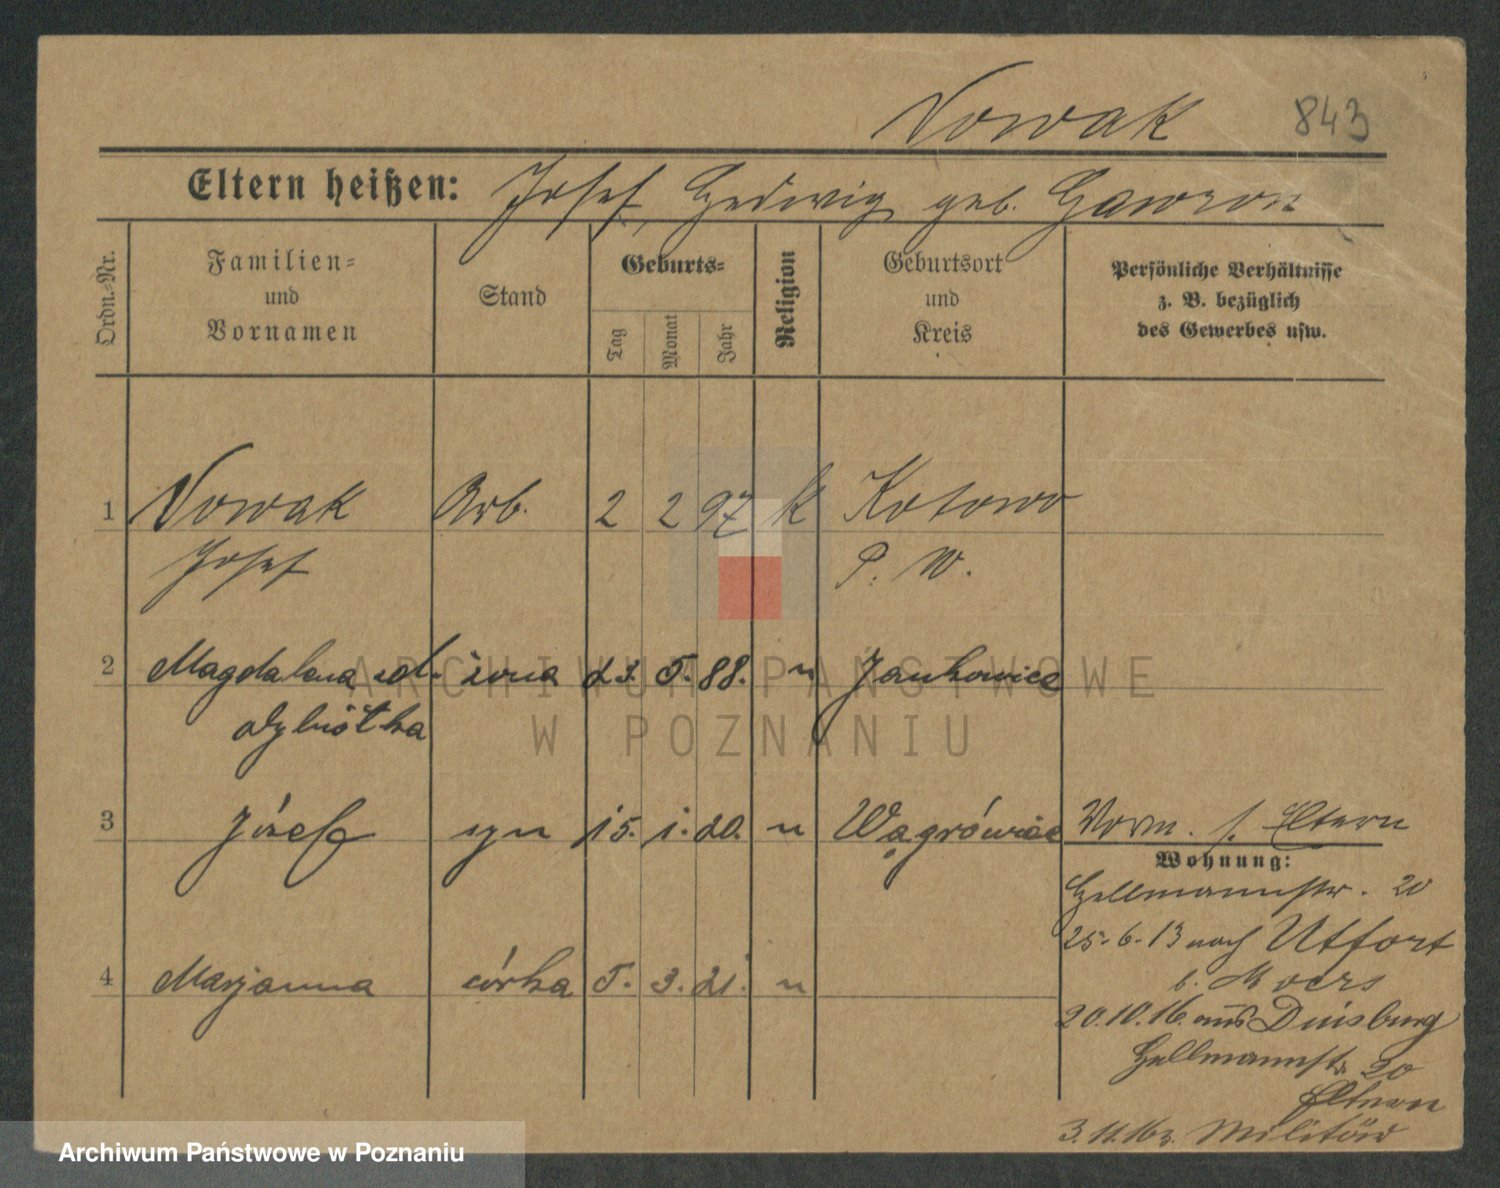 Nowak 843
Eltern heißen: Josef, Hedwig geb. Gawron
Ordn.=Nr.
Familien=
und
Vornamen
Stand
Geburts=
Tag
Monat
Jahr
Religion
Geburtsort
und
Kreis
Persönliche Verhältnisse
z. B. bezüglich
des Gewerbes usw.
1 Nowak Arb. 2 2 97 K Kotowo
Josef P. W.
2 Magdalena żona 23. 5. 88. " Jankowice
3 Józef syn 15. 1. 20. " Wągrówiec Vorm. s. Eltern
Wohnung:
Hellmannstr. 20
25.6.13 nach Utfort
b. Moers
4 Marjanna córka 5. 3. 21. "
20.10.16. aus Duisburg
Hellmannstr. 20
Eltern
3.11.16 z. Militär
ARCHIWUM PAŃSTWOWE
W POZNANIU
Archiwum Państwowe w Poznaniu